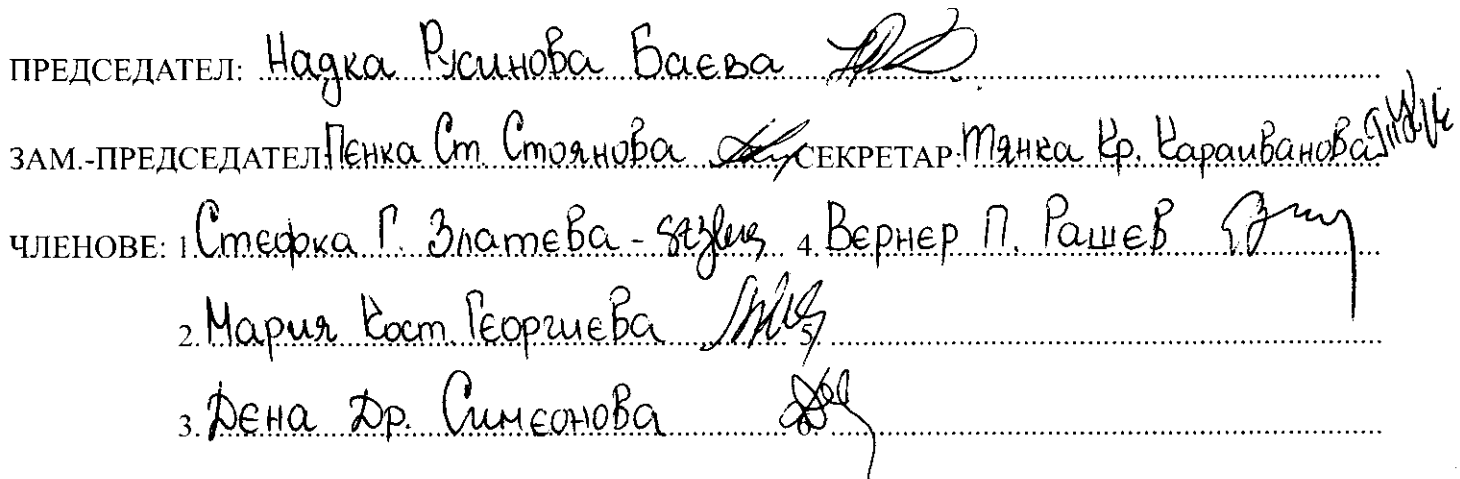 ПРЕДСЕДАТЕЛ: Надка Русинова Баева
ЗАМ.-ПРЕДСЕДАТЕЛ: Пенка Ст. Стоянова СЕКРЕТАР: Тянка Кр. Караиванова
ЧЛЕНОВЕ: 1. Стефка Г. Златева - 4. Вернер П. Рашев
2. Мария Кост. Георгиева 5.
3. Дена Др. Симеонова